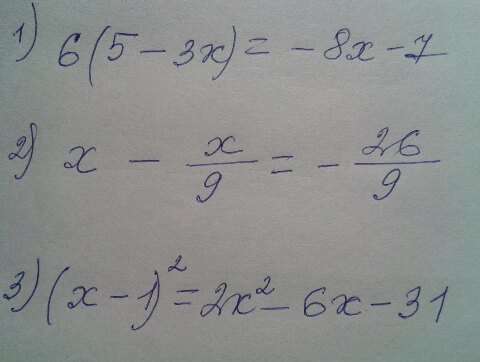 1) 6(5 - 3x) = -8x - 7
2) x - x/9 = - 26/9
3) (x - 1)² = 2x² - 6x - 31